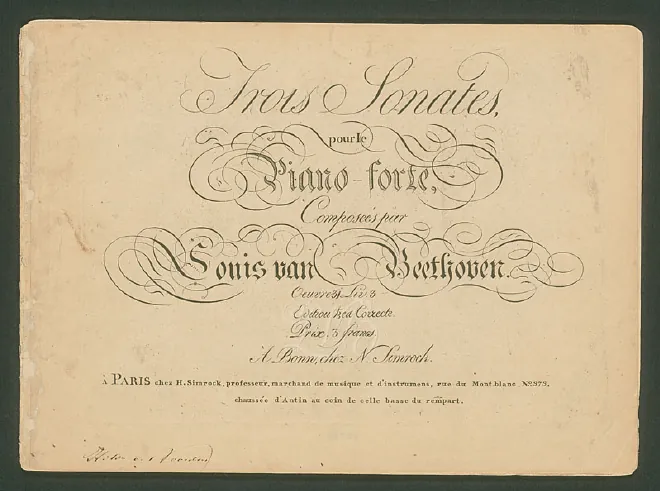 Trois Sonates,
pour le
Piano-forte,
Composées par
Louis van Beethoven.
Oeuvre 31. Liv. 3
Editiou tres Correcte.
Prix 3 francs.
A Bonn, chez N. Simrock.
à PARIS chez H. Simrock, professeur, marchand de musique et d'instrumens, rue du Mont-blanc No. 373,
chaussée d'Antin au coin de celle basse du rempart.